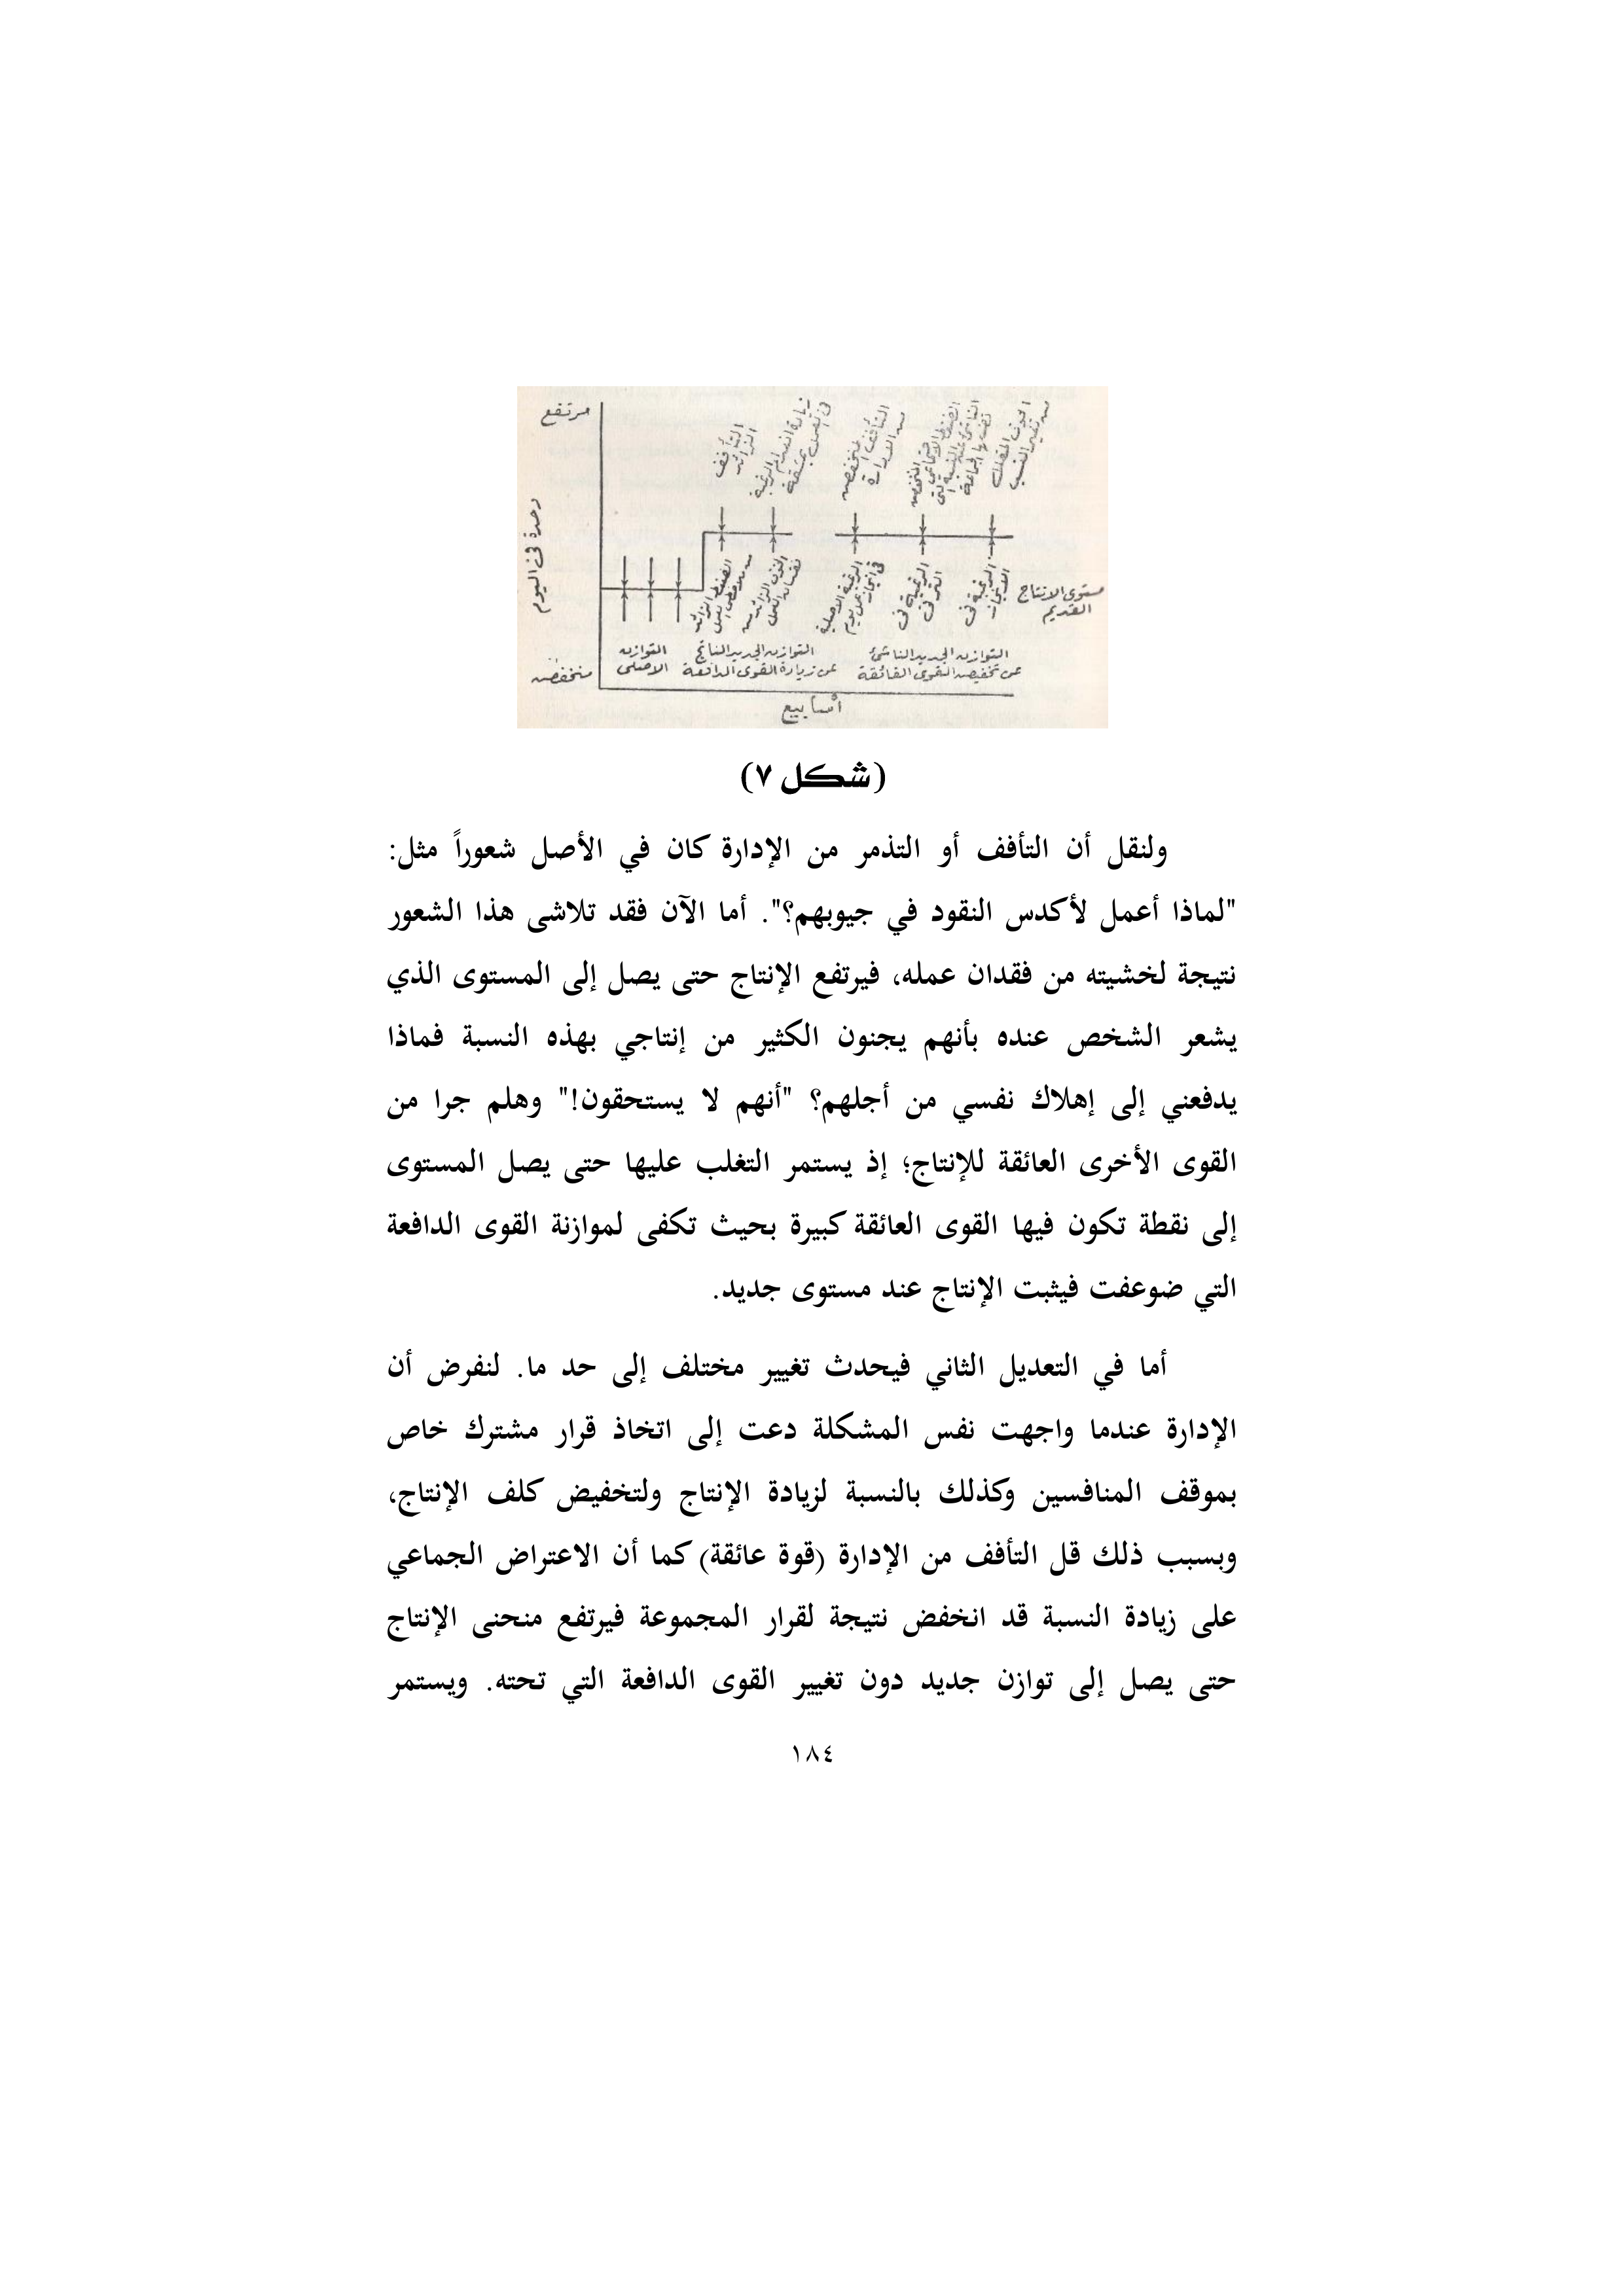 مرتفع
وحدة في اليوم
التأفف
الزائد
زيادة انعدام الرغبة
في العمل بمشقة
التأفف المنخفض
من الإدارة
الضغط الاجتماعي المنخفض
الخوف المقلل
من تغيير النسب
الضغط الزائد
من ملاحظي العمل
الخوف الزائد من
فقدان العمل
الرغبة الأصلية
في إنجاز عمل يوم
الرغبة في
الترقي
الرغبة في
الإنجاز
مستوى الانتاج
القديم
التوازن
الاصلى
التوازن الجديد الناتج
عن زيادة القوى الدافعة
التوازن الجديد الناشئ
عن تخفيض القوى الفائقة
منخفض
أسابيع
(شكل ٧)
ولنقل أن التأفف أو التذمر من الإدارة كان في الأصل شعوراً مثل:
"لماذا أعمل لأكدس النقود في جيوبهم؟". أما الآن فقد تلاشى هذا الشعور
نتيجة لخشيته من فقدان عمله، فيرتفع الإنتاج حتى يصل إلى المستوى الذي
يشعر الشخص عنده بأنهم يجنون الكثير من إنتاجي بهذه النسبة فماذا
يدفعني إلى إهلاك نفسي من أجلهم؟ "أنهم لا يستحقون!" وهلم جرا من
القوى الأخرى العائقة للإنتاج؛ إذ يستمر التغلب عليها حتى يصل المستوى
إلى نقطة تكون فيها القوى العائقة كبيرة بحيث تكفى لموازنة القوى الدافعة
التي ضوعفت فيثبت الإنتاج عند مستوى جديد.
أما في التعديل الثاني فيحدث تغيير مختلف إلى حد ما. لنفرض أن
الإدارة عندما واجهت نفس المشكلة دعت إلى اتخاذ قرار مشترك خاص
بموقف المنافسين وكذلك بالنسبة لزيادة الإنتاج ولتخفيض كلف الإنتاج،
وبسبب ذلك قل التأفف من الإدارة (قوة عائقة) كما أن الاعتراض الجماعي
على زيادة النسبة قد انخفض نتيجة لقرار المجموعة فيرتفع منحنى الإنتاج
حتى يصل إلى توازن جديد دون تغيير القوى الدافعة التي تحته. ويستمر
١٨٤